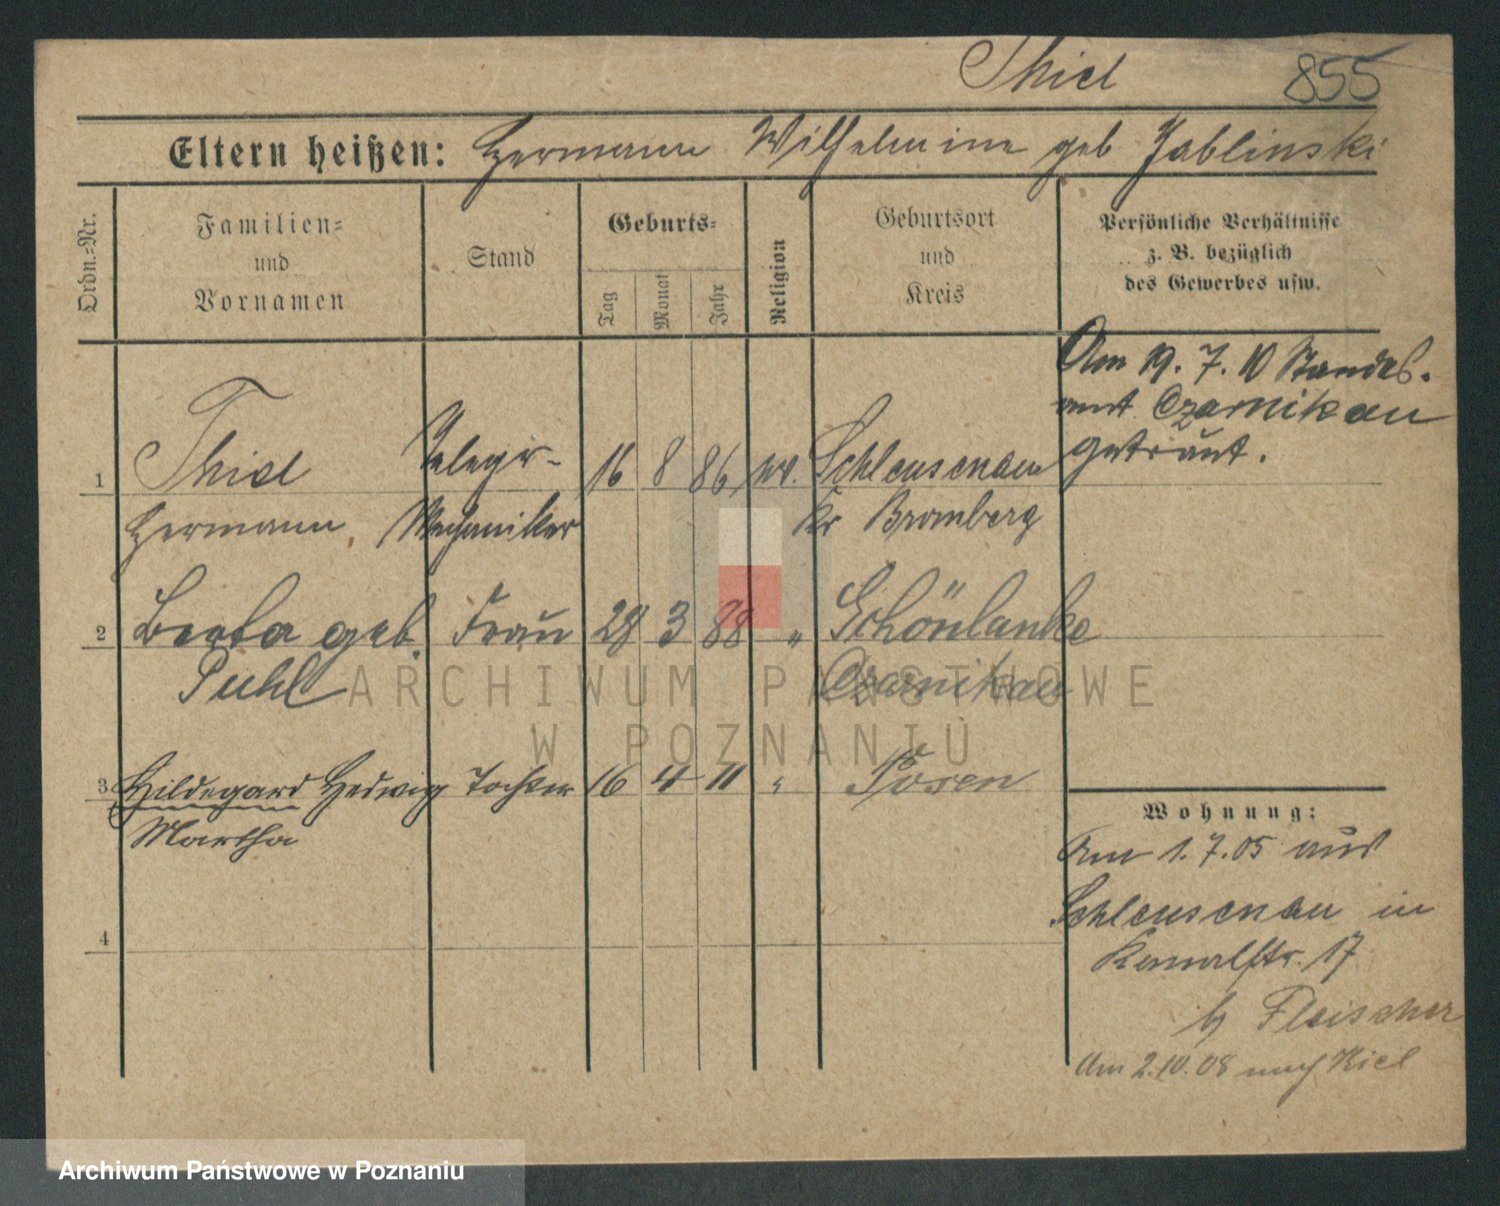 Thiel 855
Eltern heißen: Hermann Wilhelmine geb Jablinski
Ordn.-Nr.
Familien-
und
Vornamen
Stand
Geburts-
Tag
Monat
Jahr
Religion
Geburtsort
und
Kreis
Persönliche Verhältnisse
z. B. bezüglich
des Gewerbes usw.
Am 19. 7. 10 Standes-
amt Czarnikau
getraut.
1 Thiel Telegr- 16 8 86 ev. Schleusenau
Hermann Mechaniker Kr Bromberg
2 Berta geb. Frau 28 3 88 " Schönlanke
Puhl Czarnikau
3 Hildegard Hedwig Tochter 16 4 11 " Posen
Martha
4
Wohnung:
Am 1. 7. 05 aus
Schleusenau in
Kanalstr. 17
b/ Fleischer
Am 2.10.08 nach Kiel
ARCHIWUM PAŃSTWOWE
W POZNANIU
Archiwum Państwowe w Poznaniu